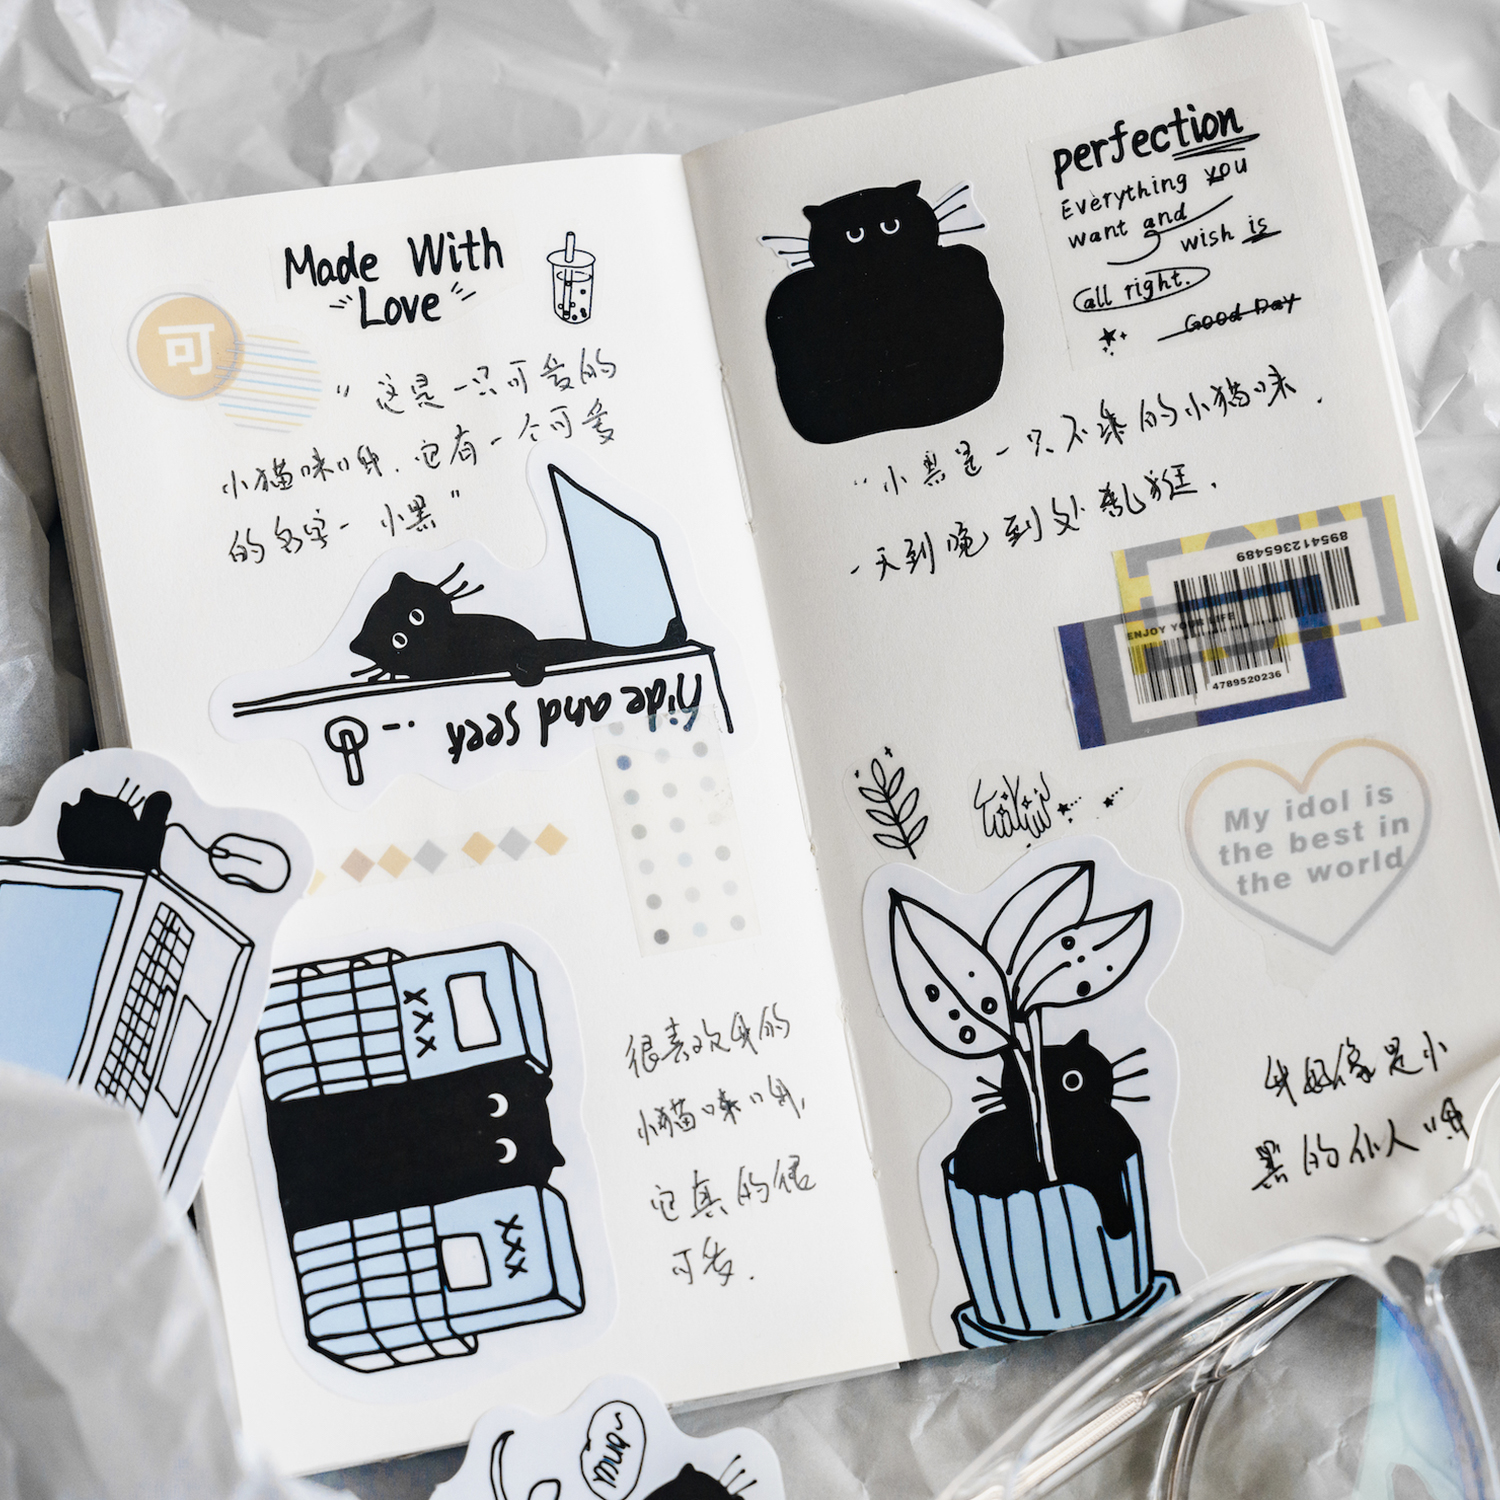 Made With
Love
可
"这是一只可爱的
小猫咪哦，它有一个可爱
的名字- 小黑"
hide and seek ...
很喜欢我的
小猫咪哦，
它真的很
可爱.
perfection
Everything you
want and
wish is
all right.
Good Day
"小黑是一只不乖的小猫咪.
一天到晚到处乱逛.
895412365489
ENJOY YOUR LIFE
4789520236
My idol is
the best in
the world
我好像是小
黑的仆人哦